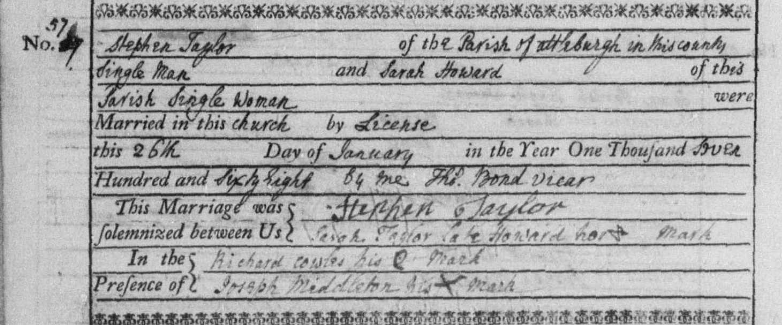 57
No. Stephen Taylor of the Parish of Attleburgh in this county
Single Man and Sarah Howard of this
Parish Single Woman were
Married in this church by License
this 26th Day of January in the Year One Thouſand Seven
Hundred and Sixty Eight By me Thos. Bond Vicar
This Marriage was Stephen Taylor
ſolemnized between Us Sarah Taylor late Howard her + Mark
In the Richard Cowles his Mark
Preſence of Joseph Middleton his X Mark